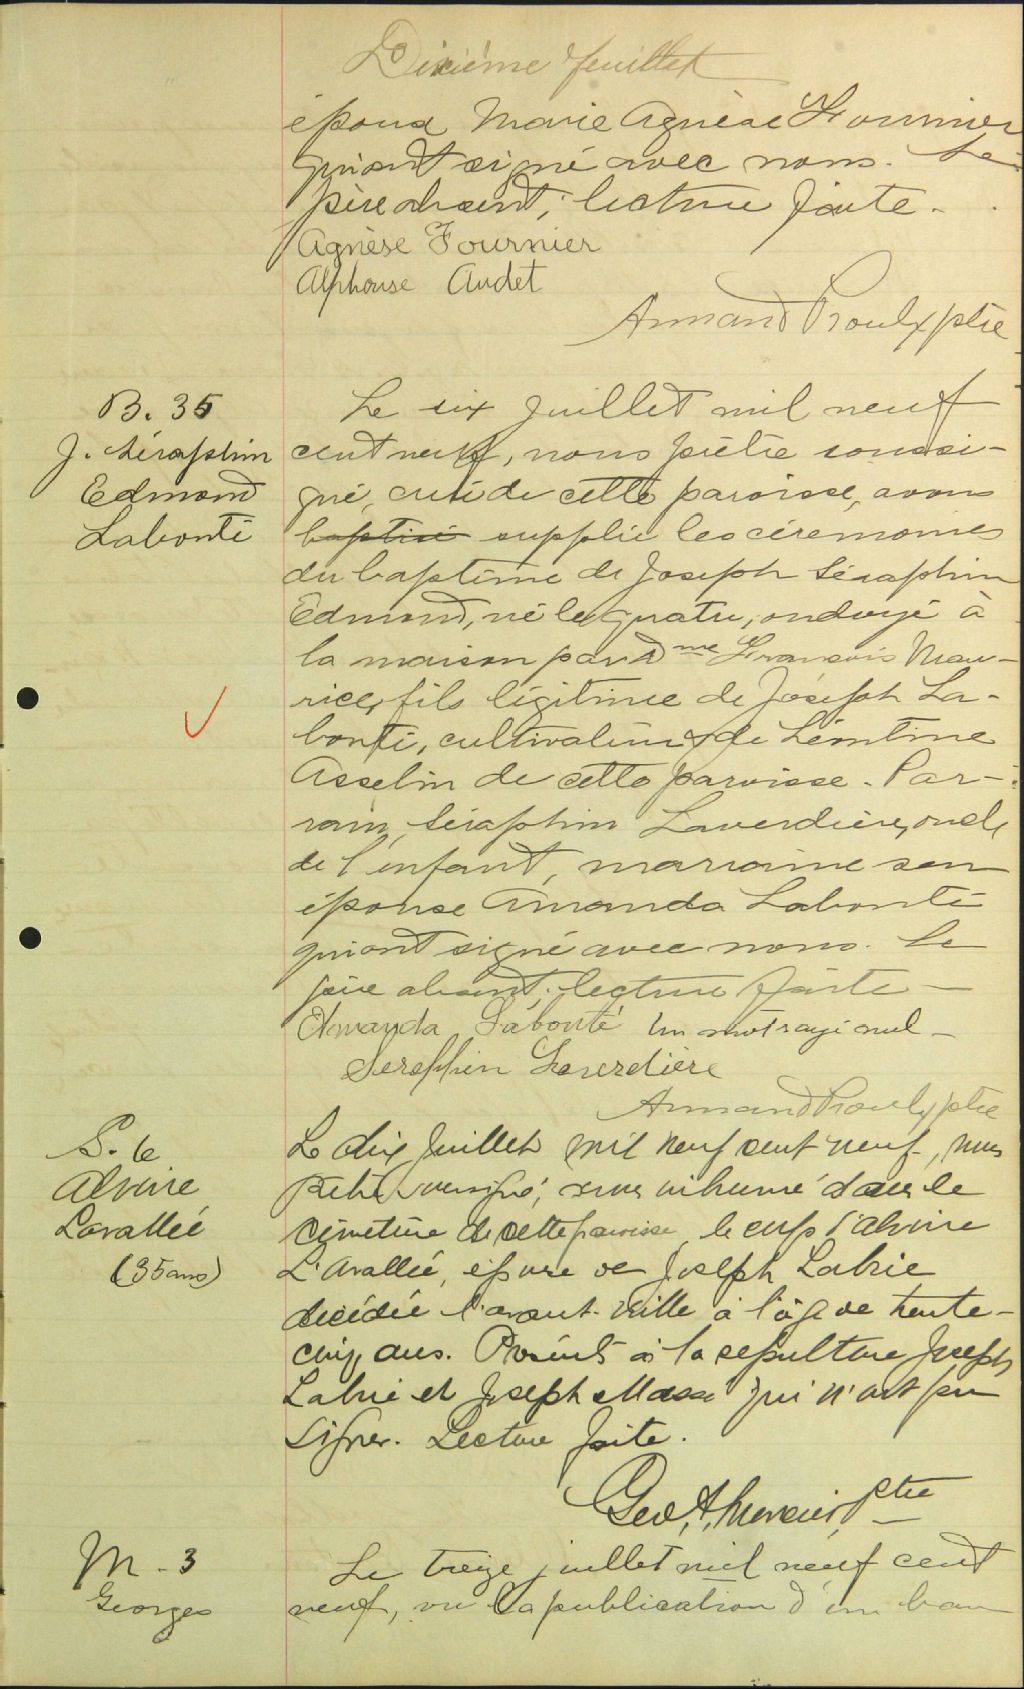 Dixième feuillet
épouse Marie Agnèse Fournier
qui ont signé avec nous. Le
père absent; lecture faite.
Agnèse Fournier
Alphonse Audet
Armand Proulx ptre
B. 35
J. Séraphin
Edmond
Labonté
Le six juillet mil neuf
cent neuf, nous prêtre soussi-
gné, curé de cette paroisse, avons
baptisé supplié les cérémonies
du baptême de Joseph Séraphin
Edmond, né le quatre, ondoyé à
la maison par Dme François Mau-
rice, fils légitime de Joseph La-
bonté, cultivateur & de Léontine
Asselin de cette paroisse. Par-
rain, Séraphin Laverdière, oncle
de l'enfant, marraine son
épouse Amanda Labonté
qui ont signé avec nous. Le
père absent; lecture faite -
Amanda Labonté Un mot rayé nul -
Seraphin Laverdière
Armand Proulx ptre
S. 6
Alvine
Lavallée
(35 ans)
Le dix Juillet mil neuf cent neuf, nous
Prêtre soussigné, avons inhumé dans le
cimetière de cette paroisse le corps d'Alvine
L'Avallée, épouse de Joseph Labrie
décédée l'avant-veille à l'âge de trente-
cinq ans. Présents à la sépulture Joseph
Labrie et Joseph Masse qui n'ont pu
signer. Lecture faite.
Geo. A. Mercier, Ptre
M - 3
Georges
Le treize juillet mil neuf cent
neuf, vu la publication d'un ban